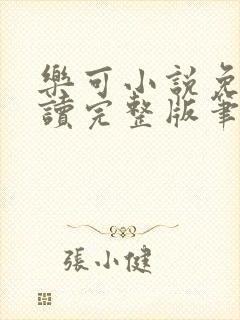 樂可小說免
讀完整版筆
張小健